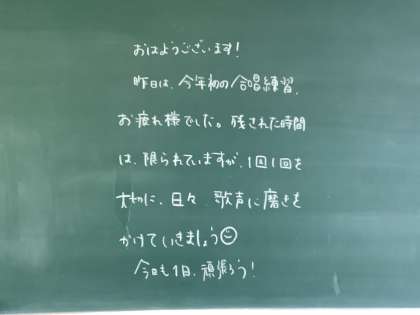 おはようございます!
昨日は、今年初の合唱練習、
お疲れ様でした。残された時間
は、限られていますが、1回1回を
大切に、日々、歌声に磨きを
かけていきましょう☺
今日も1日、頑張ろう!